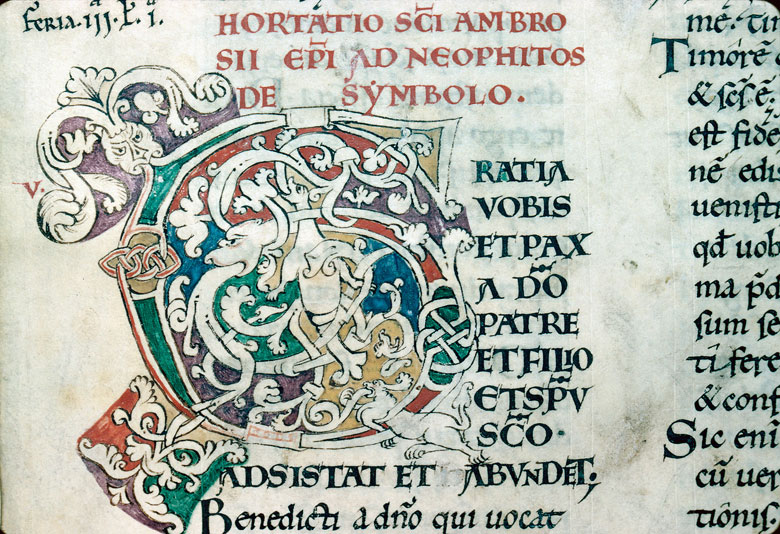 feria. iii. P. i.
HORTATIO SC̄I AMBRO
SII EP̄I AD NEOPHITOS
DE SYMBOLO.
V.
G
RATIA
VOBIS
ET PAX
A DŌO
PATRE
ET FILIO
ET SP̄U
SC̄O.
ADSISTAT ET ABUNDET;
Benedicti a dn̄o qui uocat
me. ti
Timorē
& scs̄
est fide
nē edis
uenisti
qd̄ uob
ma p̄d
sum se
tī fere
& conf
Sic eni
cū uer
tiōnis.